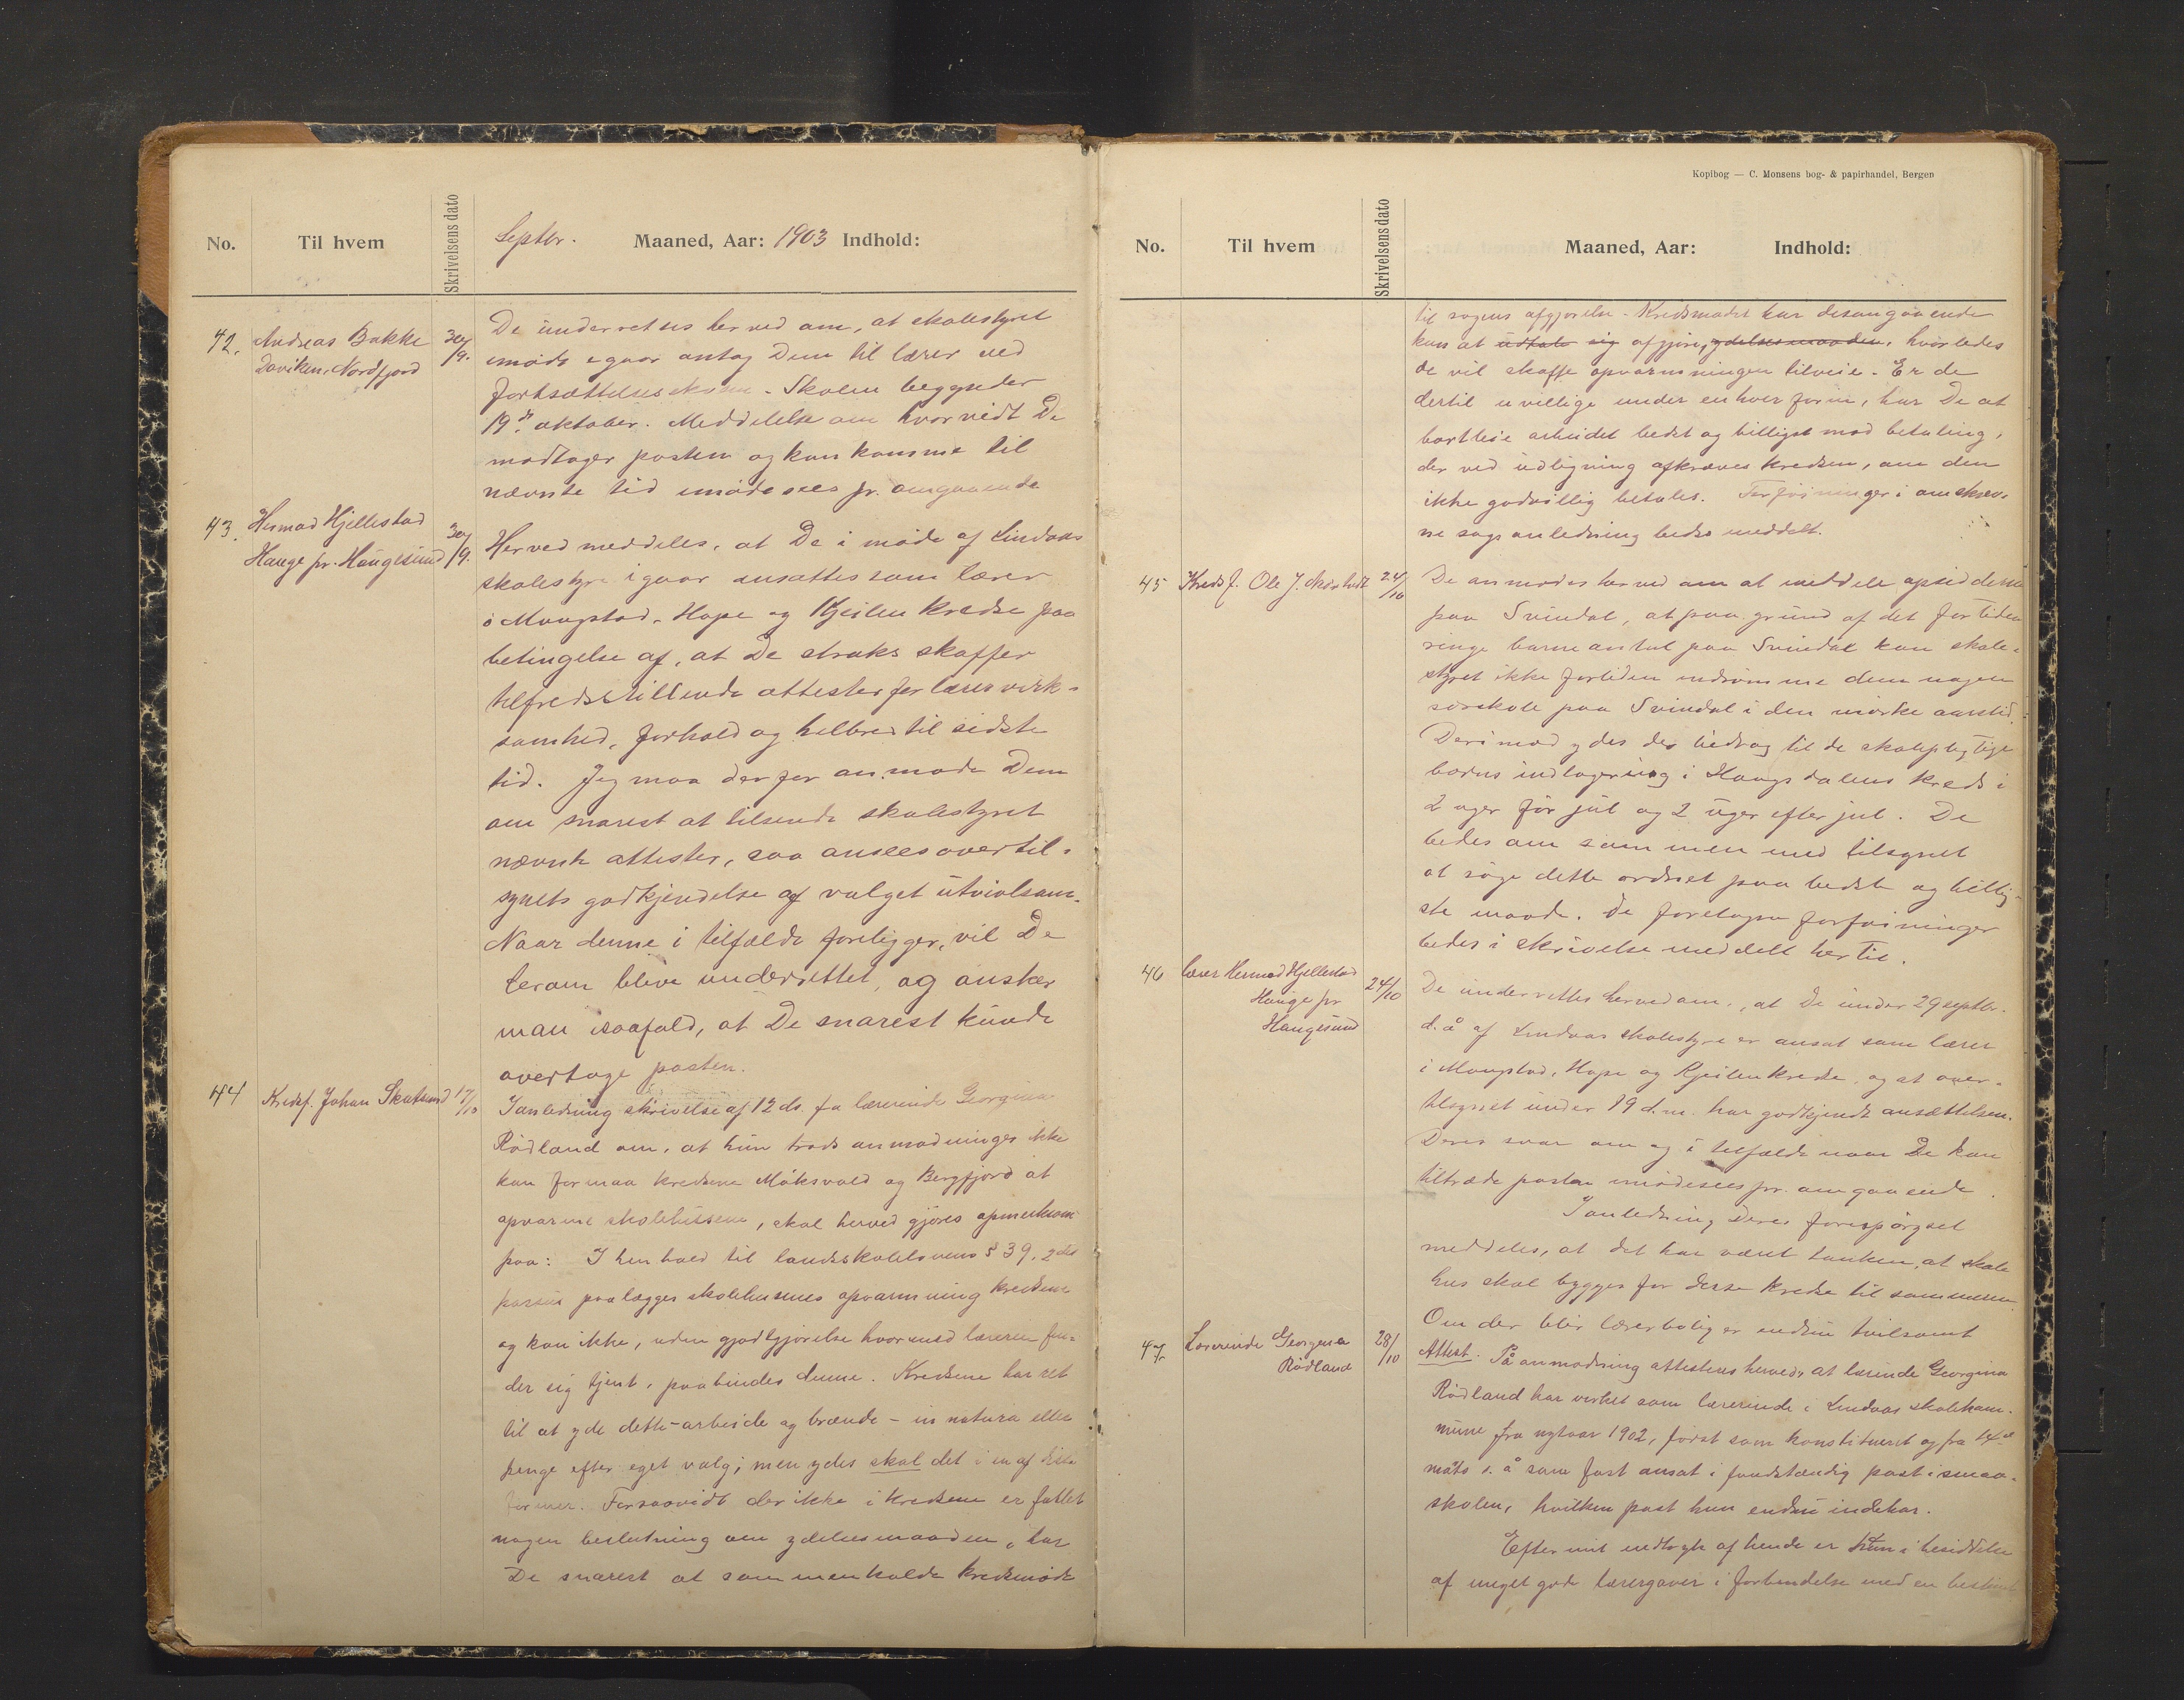 No.
Til hvem
Skrivelsens dato
Septbr. Maaned, Aar: 1903 Indhold:
42. Andreas Bakke 30/9.
Daviken, Nordfjord
De underrettes herved om, at skolestyret
imøde igaar antog Dem til lærer ved
fortsættelsesskolen. Skolen begynder
19de oktober. Meddelelse om hvorvidt De
modtager posten og kan komme til
nævnte tid imødesees pr. omgaaende
43. Hermod Hjellestad 30/9.
Hauge pr. Haugesund
Herved meddeles, at De i møde af Lindaas
skolestyre igaar ansattes som lærer
i Mongstad, Hope og Kjeilen kredse paa
betingelse af, at De straks skaffer
tilfredsstillende attester for lærervirk-
somhed, forhold og helbred til sidste
tid. Jeg maa derfor anmode Dem
om snarest at tilsende skolestyret
nævnte attester, saa ansees overtil-
synets godkjendelse af valget utvivlsom.
Naar denne i tilfælde foreligger, vil De
herom blive underrettet, og ønsker
man isaafald, at De snarest kunde
overtage posten.
44 Kredsf. Johan Skutsund 17/10
I anledning skrivelse af 12 ds. fra lærerinde Georgina
Rödland om, at hun trods anmodninger ikke
kan formaa kredsene Möksvold og Bergfjord at
opvarme skolehusene, skal herved gjøres opmerksom
paa: I henhold til landsskolelovens § 39, 2det
passus paalægges skolehusenes opvarmning kredsene
og kan ikke, uden godtgjørelse hvormed læreren fin-
der sig tjent, paabindes denne. Kredsene har ret
til at yde dette – arbeide og brænde – in natura eller
penge efter eget valg; men ydes skal det i en af disse
former. Forsaavidt der ikke i kredsene er fattet
nogen beslutning om ydelsesmaaden, har
De snarest at sammenkalde kredsmøde
Kopibog — C. Monsens bog- & papirhandel, Bergen
No.
Til hvem
Skrivelsens dato
Maaned, Aar: Indhold:
til sagens afgjørelse. Kredsmødet har desangaaende
kun at udtale sig afgjøre, ydelsesmaaden, hvorledes
de vil skaffe opvarmningen tilveie. Er de
dertil uvillige under enhver form, har De at
bortleie arbeidet bedst og billigst mod betaling,
der ved udligning afkræves kredsen, om den
ikke godvillig betales. Forføininger i omskrev-
ne sags anledning bedes meddelt.
45 Kredsf. Ole J. 24/10
De anmodes herved om at meddele opsidderne
paa Svindal, at paa grund af det for tiden
ringe barneantal paa Svindal kan skole-
styret ikke fortiden indrømme dem nogen
særskole paa Svindal i den mørke aarstid.
Derimod ydes der bidrag til de skolepligtige
børns indlogering i Haugsdalens kreds i
2 uger før jul og 2 uger efter jul. De
bedes om sammen med tilsynet
at søge dette ordnet paa bedste og billig-
ste maade. De foretagne forføininger
bedes i skrivelse meddelt hertil.
46 Lærer Hermod Hjellestad 24/10
Hauge pr
Haugesund
De underrettes herved om, at De under 29 septbr.
d. å. af Lindaas skolestyre er ansat som lærer
i Mongstad, Hope og Kjeilen kredse, og at over-
tilsynet under 19 d.m. har godkjendt ansættelsen.
Deres svar om og i tilfælde naar De kan
tiltræde posten imødesees pr. omgaaende.
I anledning Deres forespørgsel
meddeles, at det har været tanken, at skole
hus skal bygges for disse kredse til sommeren.
Om der blir lærerbolig er endnu tvilsomt
47. Lærerinde Georgina 28/10
Rödland
Attest. På anmodning attesteres herved, at lærinde Georgina
Rödland har virket som lærerinde i Lindaas skolekom-
mune fra nytaar 1902, først som konstitueret og fra 14de
s. å som fast ansat i post i smaa-
skolen, hvilken post hun endnu indehar.
Efter mit indtryk af hende er hun i besiddelse
af meget gode lærergaver i forbindelse med en bestemt